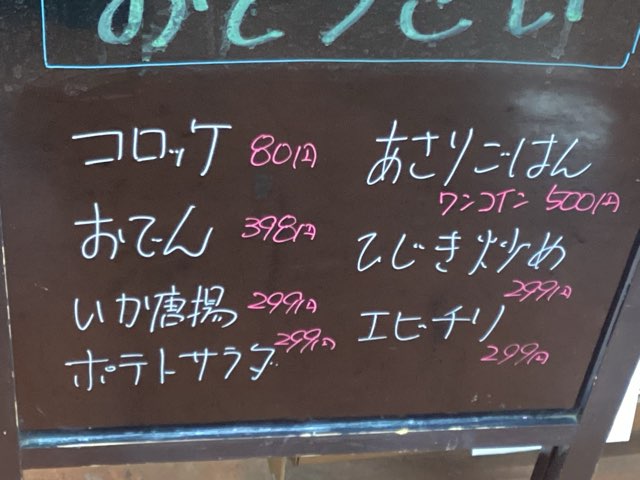 おそうざい
コロッケ 80円
おでん 398円
いか唐揚 299円
ポテトサラダ 299円
あさりごはん
ワンコイン 500円
ひじき炒め
299円
エビチリ
299円